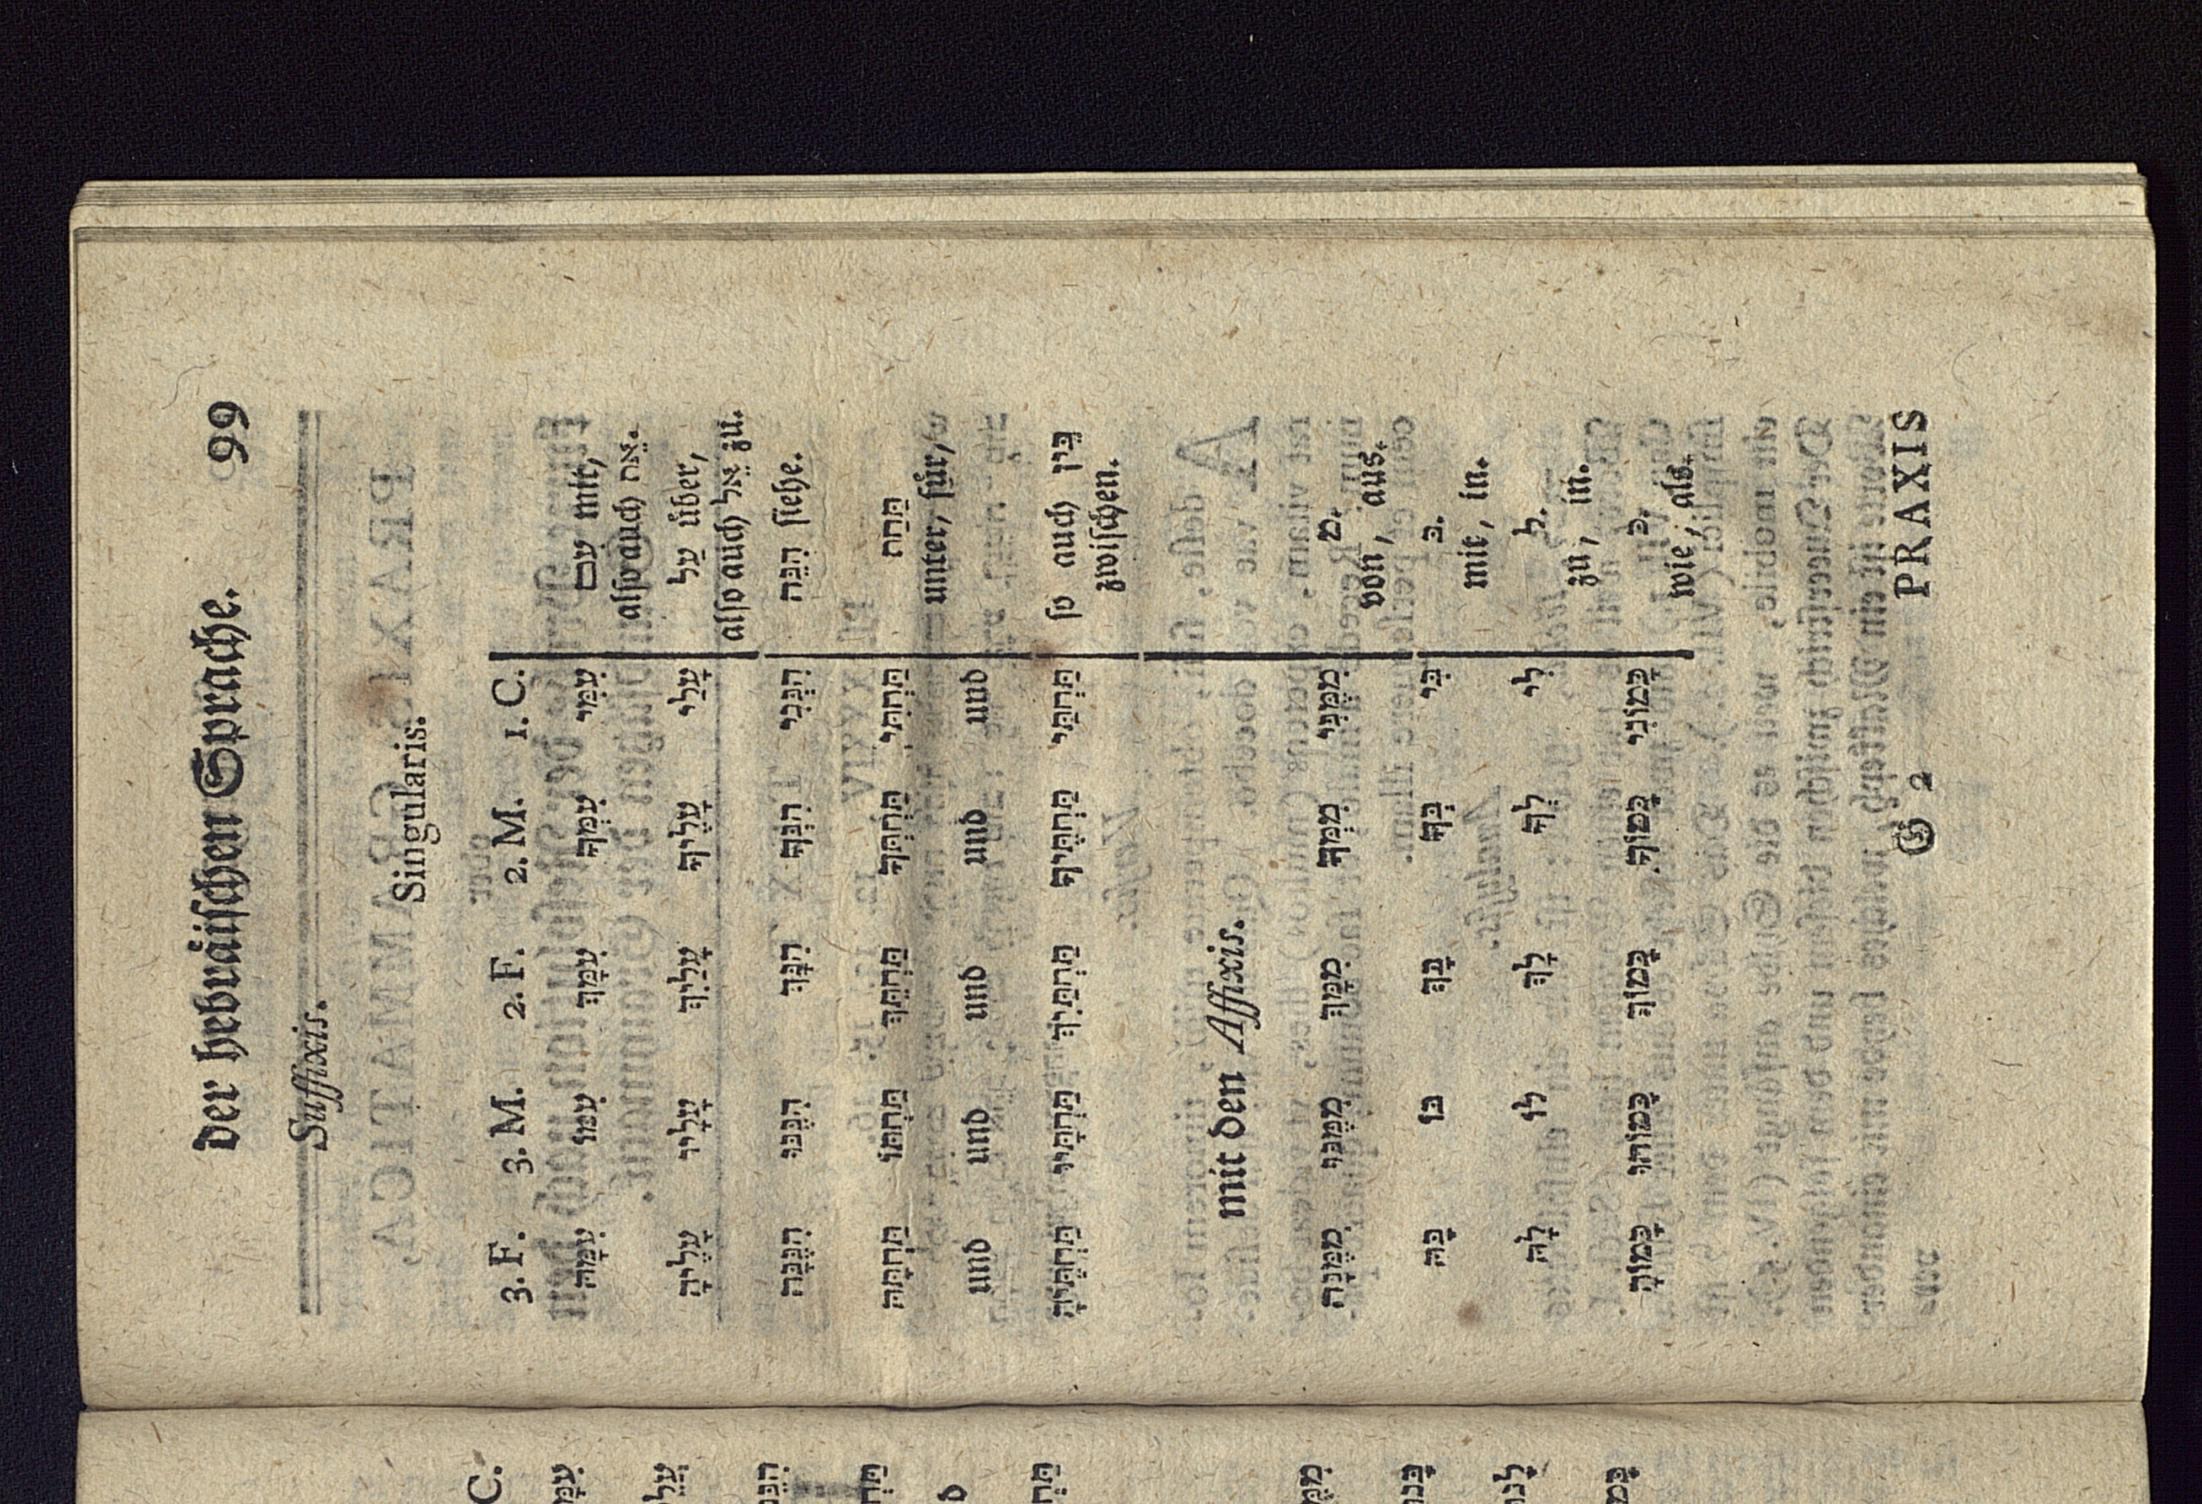 der hebräischen Sprache. 99
Suffixis.
Singularis.
3. F. 3. M. 2. F. 2. M. 1. C.
עִמָּהּ עִמּוֹ עִמָּךְ עִמְּךָ עִמִּי עִם mit,
also auch אֵת.
עָלֶיהָ עָלָיו עָלַיִךְ עָלֶיךָ עָלַי עַל über,
also auch אֶל zu.
הִנֶּנָּה הִנֶּנּוּ הִנָּךְ הִנְּךָ הִנְנִי הִנֵּה siehe.
תַּחְתָּהּ תַּחְתּוֹ תַּחְתֵּךְ תַּחְתְּךָ תַּחְתִּי תַּחַת
und und und und und unter, für,
תַּחְתֶּיהָ תַּחְתָּיו תַּחְתַּיִךְ תַּחְתֶּיךָ תַּחְתַּי so auch בֵּין
zwischen.
mit den Affixis.
מִמֶּנָּה מִמֶּנּוּ מִמָּךְ מִמְּךָ מִמֶּנִּי מ.
von, aus.
בָּהּ בּוֹ בָּךְ בְּךָ בִּי ב.
mit, in.
לָהּ לוֹ לָךְ לְךָ לִי ל.
zu, in.
כָּמוֹהָ כָּמוֹהוּ כָּמוֹךְ כָּמוֹךָ. כָּמוֹנִי כ.
wie, als.
G 2 PRAXIS
C.